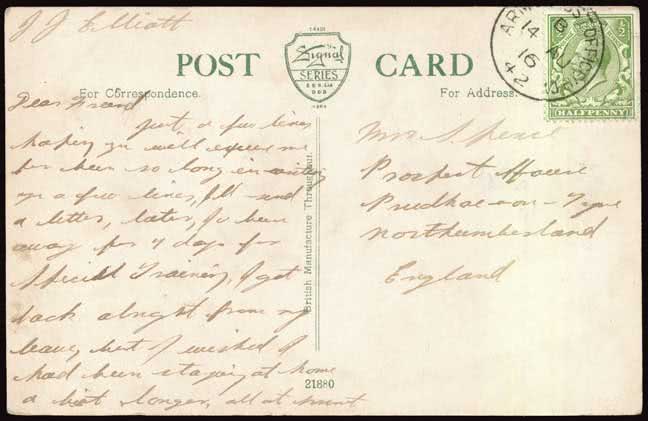 J J Elliott
POST CARD
TRADE
Signal
SERIES
MARK
For Correspondence.
For Address.
ARMY POST OFFICE
B
14 AU
16
42
½
HALFPENNY
Dear Friend
Just a few lines
hoping you will excuse me
for been so long in writing
you a few lines, I'll send
a letter, later, I've been
away for 7 days for
Special Training, I got
back alright from my
leave, but I wished I
had been staying at home
a bit longer, all at present
Mr Spence
Prospect House
Prudhoe-on-Tyne
Northumberland
England
British Manufacture Throughout.
21880